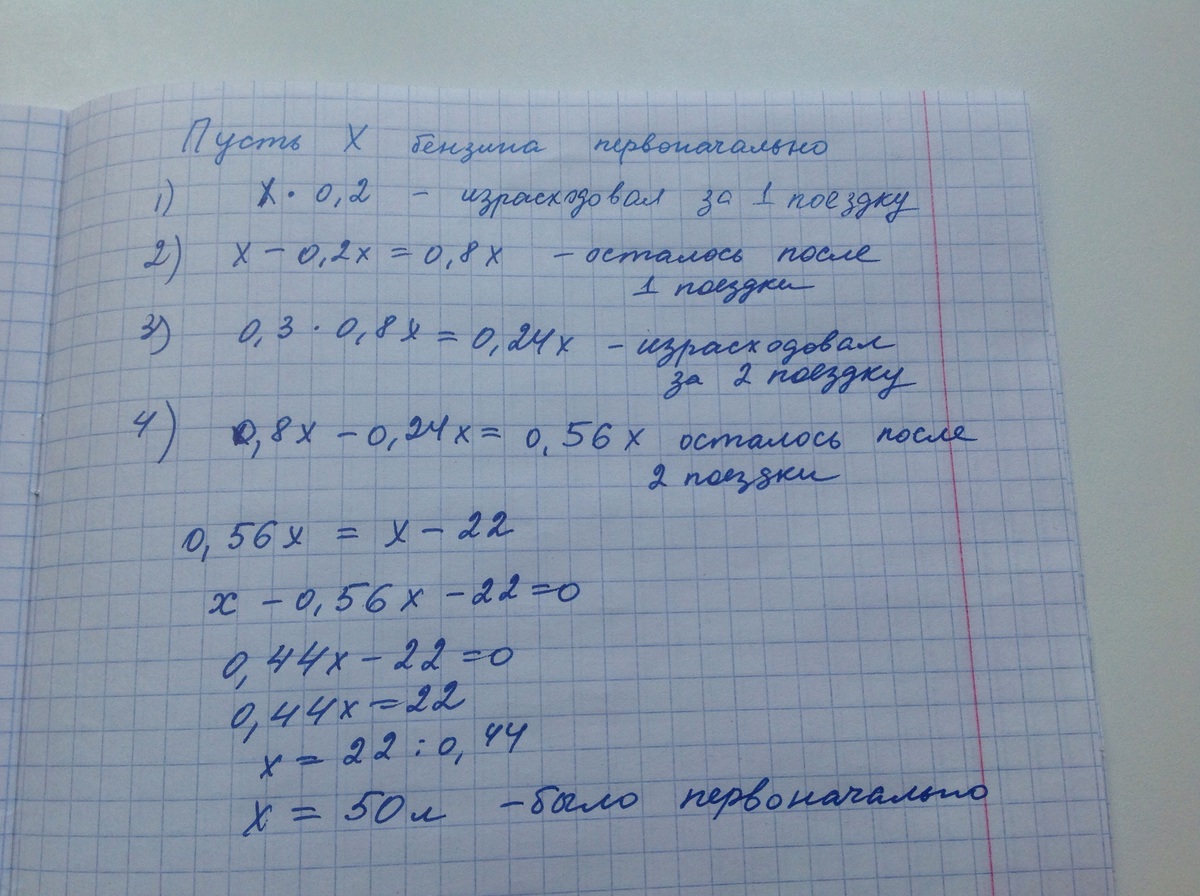 Пусть X бензина первоначально
1) X · 0,2 - израсходовал за 1 поездку
2) x - 0,2x = 0,8x - осталось после
1 поездки
3) 0,3 · 0,8x = 0,24x - израсходовал
за 2 поездку
4) 0,8x - 0,24x = 0,56x осталось после
2 поездки
0,56x = x - 22
x - 0,56x - 22 = 0
0,44x - 22 = 0
0,44x = 22
x = 22 : 0,44
x = 50 л - было первоначально